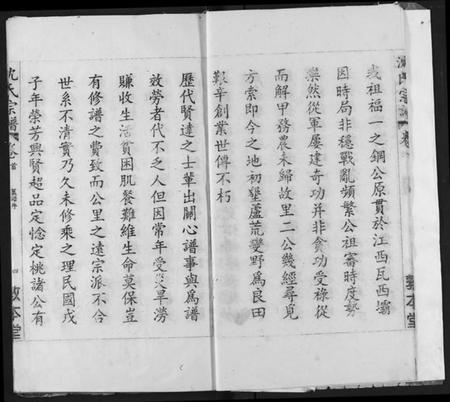 沈氏宗譜 卷
或祖福一之鋼公原貫於江西瓦西壩
因時局非穩戰亂頻繁公祖審時度勢
槩然從軍屢建奇功并非貪功受祿從
而解甲務農未歸故里二公幾經尋覓
方索即今之地初墾蘆荒變野為良田
艱辛創業世傳不朽
敦本堂
歷代賢達之士輩出關心譜事與為譜
效勞者代不乏人但因常年受災旱勞
賺收生活貧困肌餐難維生命莫保豈
有修譜之費致而公里之遠宗派不合
世系不清實乃久未修乘之理民國戌
子年榮芳興賢超品定惗定桃諸公有
沈氏宗譜 卷首
四 敦本堂